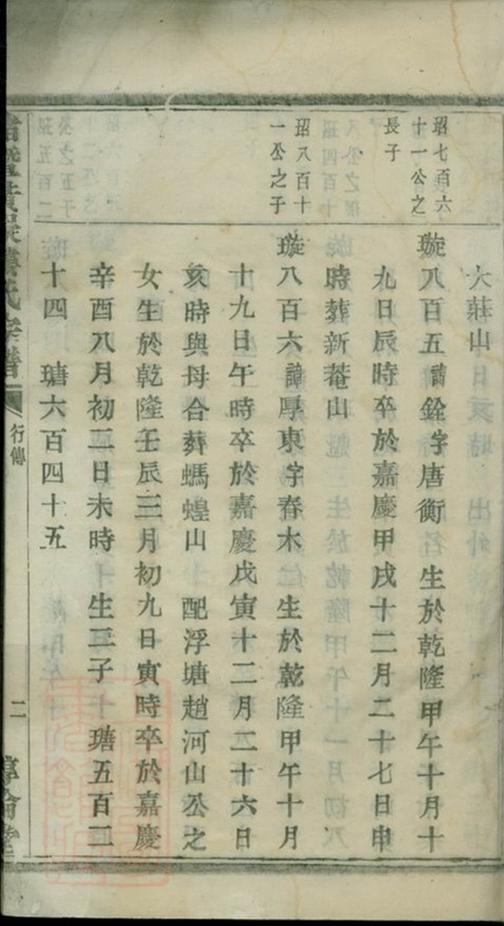 大莊山
珆七百六
十一公之
長子
璇八百五 諱銓字唐衡 生於乾隆甲午十月十
九日辰時卒於嘉慶甲戌十二月二十七日申
時葬新菴山
珆八百十
一公之子
璇八百六 諱厚東字春木 生於乾隆甲午十月
十九日午時卒於嘉慶戊寅十二月二十六日
亥時與母合葬螞蝗山 配浮塘趙河山公之
女生於乾隆壬辰三月初九日寅時卒於嘉慶
辛酉八月初二日未時 生三子 瑭五百二
十四 瑭六百四十五
氏宗譜
行傳
二